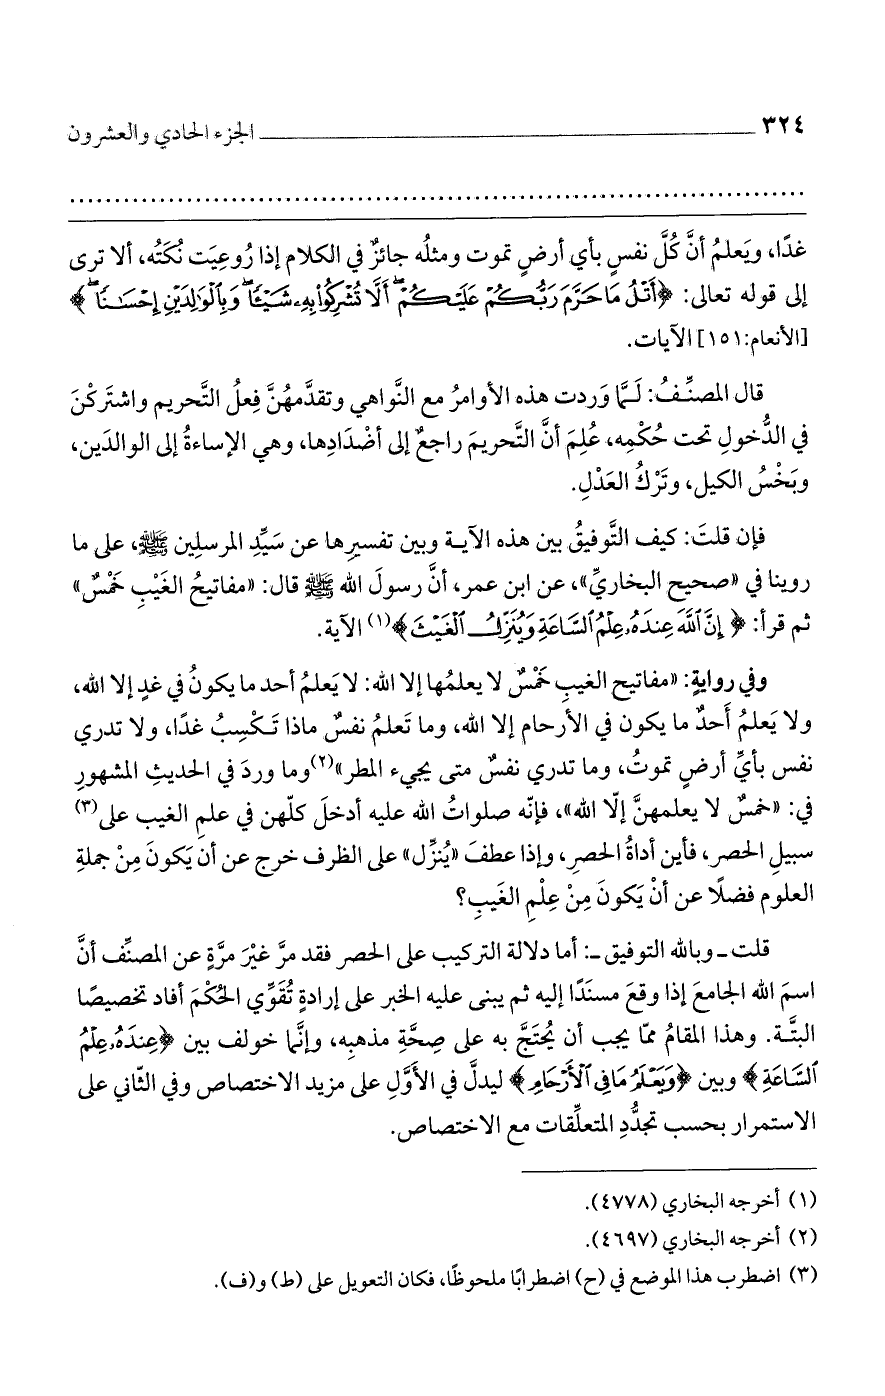 ٣٢٤ ــــــــــــــــــــ الجزء الحادي والعشرون
................................................................................
غدًا، ويَعلمُ أنَّ كُلَّ نفسٍ بأي أرضٍ تموت ومثلُه جائزٌ في الكلام إذا رُوعِيَت نُكَتُه، ألا ترى
إلى قوله تعالى: ﴿أَتْلُ مَا حَرَّمَ رَبُّكُمْ عَلَيْكُمْ ۖ أَلَّا تُشْرِكُوا۟ بِهِۦ شَيْـًٔا ۖ وَبِٱلْوَٰلِدَيْنِ إِحْسَـٰنًا ۖ﴾
[الأنعام: ١٥١] الآيات.
قال المصنِّفُ: لَـمَّا وَردت هذه الأوامرُ مع النَّواهي وتقدَّمهُنَّ فِعلُ التَّحريم واشتَركْنَ
في الدُّخولِ تحت حُكْمِه، عُلِمَ أنَّ التَّحريمَ راجعٌ إلى أضْدَادِها، وهي الإساءةُ إلى الوالدَين،
وبَخْسُ الكيل، وتَرْكُ العَدْلِ.
فإن قلتَ: كيف التَّوفيقُ بين هذه الآيـة وبين تفسيرِها عن سَيِّدِ المرسلِين ﷺ، على ما
روينا في «صحيح البخاريِّ»، عن ابن عمر، أنَّ رسولَ الله ﷺ قال: «مفاتيحُ الغَيْبِ خَمْسٌ»
ثم قرأ: ﴿إِنَّ ٱللَّهَ عِندَهُۥ عِلْمُ ٱلسَّاعَةِ وَيُنَزِّلُ ٱلْغَيْثَ﴾(١) الآية.
وفي روايةٍ: «مفاتيح الغيبِ خَمْسٌ لا يعلمُها إلا الله: لا يَعلمُ أحد ما يكونُ في غدٍ إلا الله،
ولا يَعلمُ أَحدٌ ما يكون في الأرحام إلا الله، وما تَعلمُ نفسٌ ماذا تَـكْسِبُ غدًا، ولا تدري
نفس بأيِّ أرضٍ تموتُ، وما تدري نفسٌ متى يجيء المطر»(٢) وما وردَ في الحديثِ المشهورِ
في: «خمسٌ لا يعلمهنَّ إلّا الله»، فإنّه صلواتُ الله عليه أدخلَ كلّهن في علمِ الغيب على(٣)
سبيلِ الحصر، فأين أداةُ الحصرِ، وإذا عطفَ «يُنزِّل» على الظرف خرج عن أن يَكونَ مِنْ جملةِ
العلوم فضلًا عن أنْ يَكونَ مِنْ عِلْمِ الغَيبِ؟
قلت ـ وبالله التوفيق ـ: أما دلالة التركيب على الحصر فقد مرَّ غيْرَ مرَّةٍ عن المصنِّف أنَّ
اسمَ الله الجامعَ إذا وقعَ مسنَدًا إليه ثم يبنى عليه الخبر على إرادةِ تُقَوِّي الحُكْمَ أفاد تخصيصًا
البتَّـة. وهذا المقامُ ممّا يجب أن يُحتَجَّ به على صِحَّةِ مذهبِه، وإنَّما خولف بين ﴿عِندَهُۥ عِلْمُ
ٱلسَّاعَةِ﴾ وبين ﴿وَيَعْلَمُ مَا فِى ٱلْأَرْحَامِ﴾ ليدلَّ في الأوَّلِ على مزيد الاختصاص وفي الثّاني على
الاستمرار بحسب تجدُّدِ المتعلِّقات مع الاختصاص.
(١) أخرجه البخاري (٤٧٧٨).
(٢) أخرجه البخاري (٤٦٩٧).
(٣) اضطرب هذا الموضع في (ح) اضطرابًا ملحوظًا، فكان التعويل على (ط) و(ف).